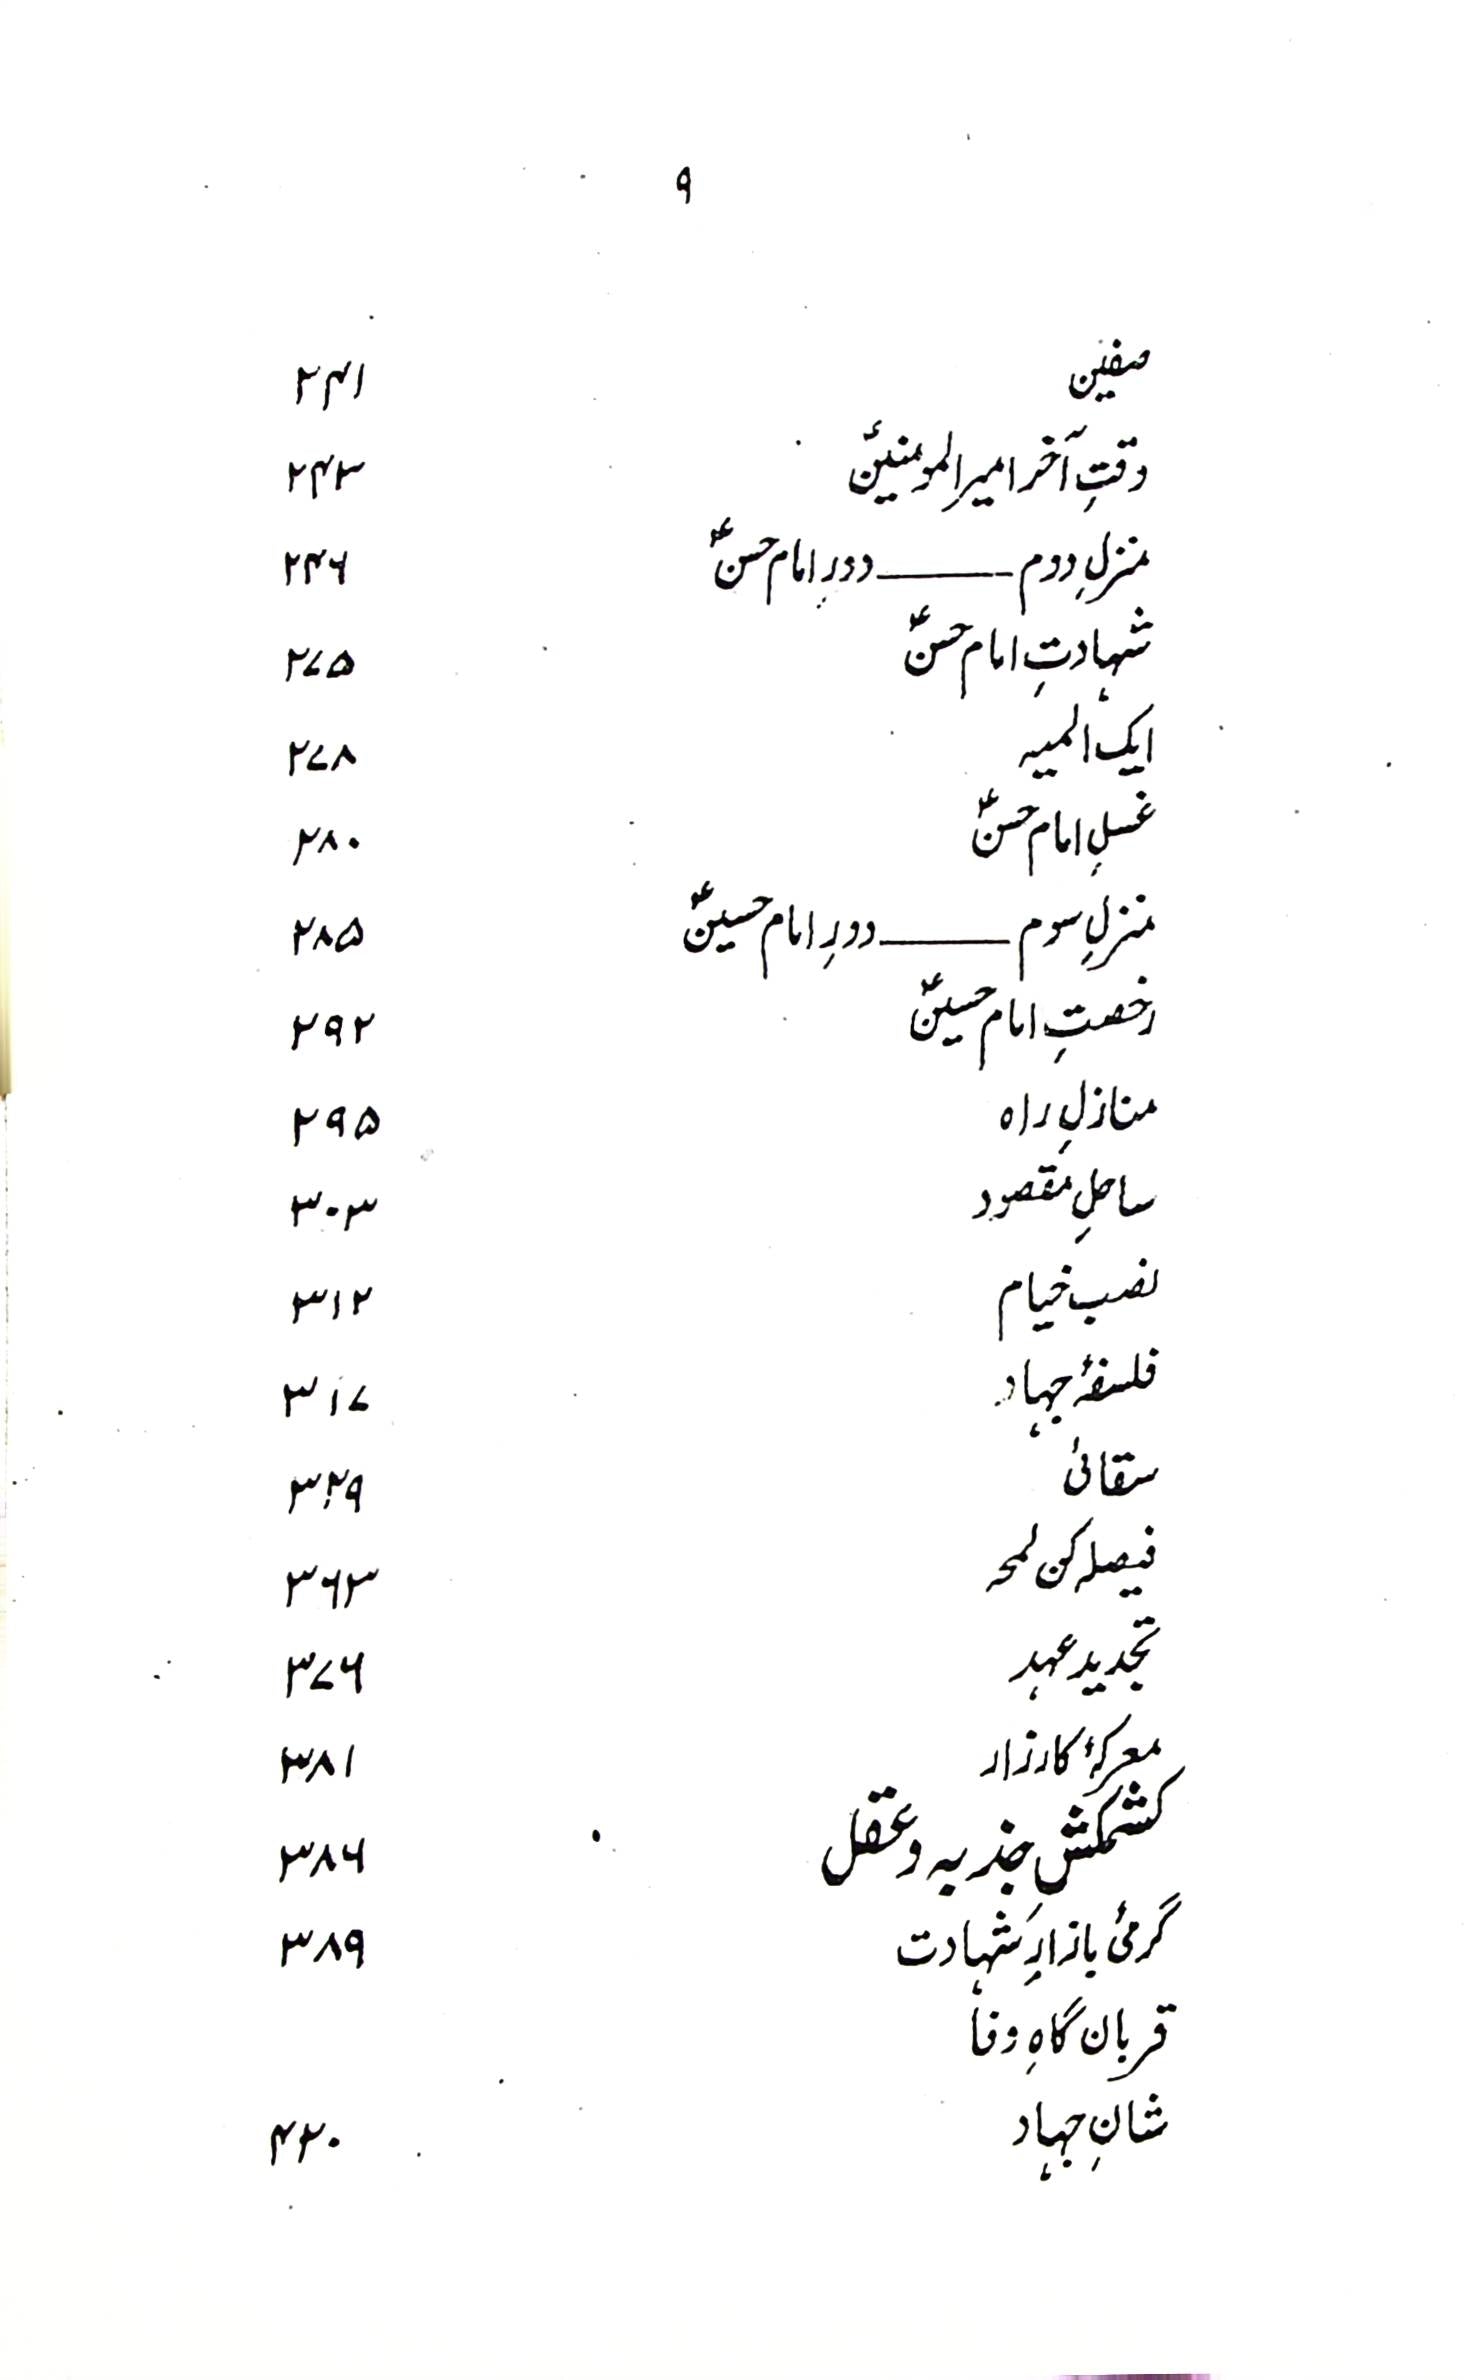 ۹
صفین ۲۴۱
وقتِ آخر امیرالمومنینؑ ۲۴۳
منزلِ دوم ——— دورِ امام حسنؑ ۲۴۶
شہادتِ امام حسنؑ ۲۷۵
ایک المیہ ۲۷۸
غسلِ امام حسنؑ ۲۸۰
منزلِ سوم ——— دورِ امام حسینؑ ۲۸۵
رخصتِ امام حسینؑ ۲۹۲
منازلِ راہ ۲۹۵
ساحلِ مقصود ۳۰۳
نصب خیام ۳۱۲
فلسفۂ جہاد ۳۱۷
سقائی ۳۲۹
فیصلہ کن لمحہ ۳۶۳
تجدید عہد ۳۷۶
معرکۂ کارزار ۳۸۱
کشمکش جذبہ و عقل ۳۸۶
گرمیٔ بازارِ شہادت ۳۸۹
قربان گاہِ وفا
شانِ جہاد ۴۲۰